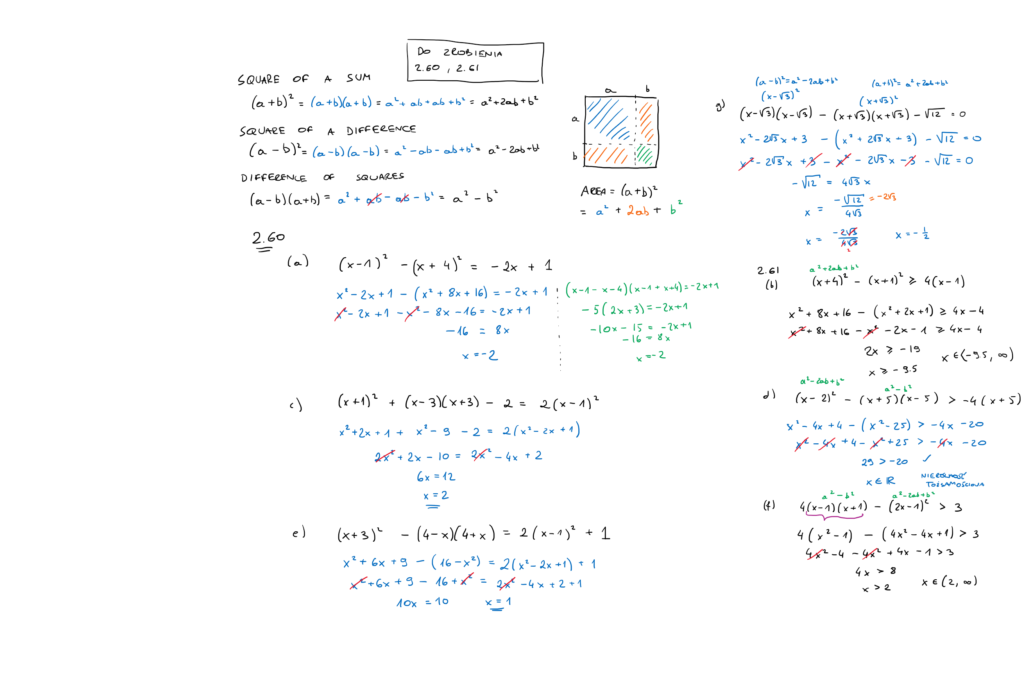 DO ZROBIENIA
2.60, 2.61
SQUARE OF A SUM
(a+b)² = (a+b)(a+b) = a² + ab + ab + b² = a² + 2ab + b²
SQUARE OF A DIFFERENCE
(a-b)² = (a-b)(a-b) = a² - ab - ab + b² = a² - 2ab + b²
DIFFERENCE OF SQUARES
(a-b)(a+b) = a² + ab - ab - b² = a² - b²
a b
a
b
AREA = (a+b)²
= a² + 2ab + b²
2.60
(a) (x-1)² - (x+4)² = -2x + 1
x² - 2x + 1 - (x² + 8x + 16) = -2x + 1
x² - 2x + 1 - x² - 8x - 16 = -2x + 1
-16 = 8x
x = -2
(x-1-x-4)(x-1+x+4) = -2x+1
-5(2x+3) = -2x+1
-10x - 15 = -2x+1
-16 = 8x
x = -2
c) (x+1)² + (x-3)(x+3) - 2 = 2(x-1)²
x² + 2x + 1 + x² - 9 - 2 = 2(x² - 2x + 1)
2x² + 2x - 10 = 2x² - 4x + 2
6x = 12
x = 2
e) (x+3)² - (4-x)(4+x) = 2(x-1)² + 1
x² + 6x + 9 - (16 - x²) = 2(x² - 2x + 1) + 1
x² + 6x + 9 - 16 + x² = 2x² - 4x + 2 + 1
10x = 10 x = 1
(a-b)² = a² - 2ab + b² (a+b)² = a² + 2ab + b²
(x-√3)² (x+√3)²
g) (x-√3)(x-√3) - (x+√3)(x+√3) - √12 = 0
x² - 2√3x + 3 - (x² + 2√3x + 3) - √12 = 0
x² - 2√3x + 3 - x² - 2√3x - 3 - √12 = 0
-√12 = 4√3x
x = -√12/4√3 = -2√3
x = -2√3/4√3 2 x = -1/2
2.61
a² + 2ab + b²
(b) (x+4)² - (x+1)² ≥ 4(x-1)
x² + 8x + 16 - (x² + 2x + 1) ≥ 4x - 4
x² + 8x + 16 - x² - 2x - 1 ≥ 4x - 4
2x ≥ -19 x ∈ (-9.5, ∞)
x ≥ -9.5
a² - 2ab + b² a² - b²
d) (x-2)² - (x+5)(x-5) > -4(x+5)
x² - 4x + 4 - (x² - 25) > -4x - 20
x² - 4x + 4 - x² + 25 > -4x - 20
29 > -20 ✓
x ∈ ℝ NIERÓWNOŚĆ
TOŻSAMOŚCIOWA
a² - b² a² - 2ab + b²
(f) 4(x-1)(x+1) - (2x-1)² > 3
4(x² - 1) - (4x² - 4x + 1) > 3
4x² - 4 - 4x² + 4x - 1 > 3
4x > 8
x > 2 x ∈ (2, ∞)